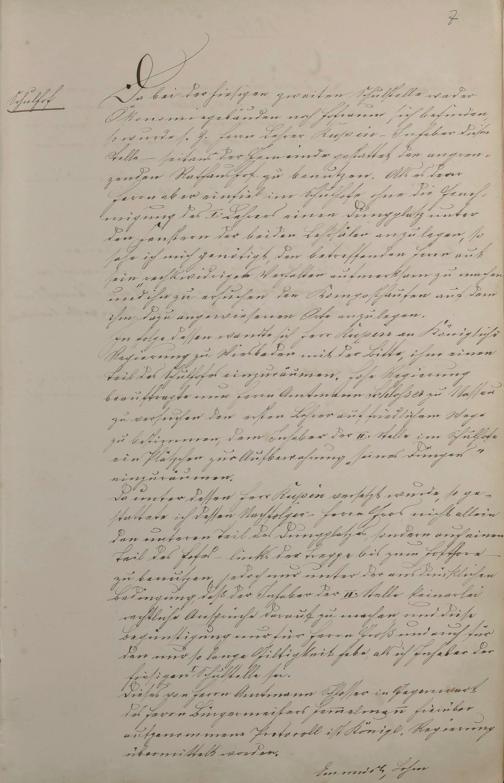 7
Schulhof
Da bei der hiesigen zweiten Schulstelle weder
Ökonomiegebäude noch Hofraum sich befinden
so wurde s. Z. Herrn Lehrer Kuxin - Inhaber dieser
Stelle - seitens der Gemeinde gestattet den angren-
zenden Rathaushof zu benutzen. Als es dem
Herrn aber einfiel im Schulhofe ohne die Geneh-
migung des I. Lehrers einen Dungplatz unter
den Fenstern der beiden Lehrsäle anzulegen, so
sah ich mich genötigt, den betreffenden Herrn auf
sein rechtswidriges Vorhaben aufmerksam zu machen
und ihn zu ersuchen den Komposthaufen auf dem
ihm dazu angewiesenen Orte anzulegen.
In folge dessen wandte sich Herr Kuxin an Königliche
Regierung zu Wiesbaden mit der Bitte, ihm einen
Teil des Schulhofes einzuräumen. Hohe Regierung
beauftragte nun Herrn Amtmann Schlosser zu Nassau
zu versuchen den ersten Lehrer auf friedlichem Wege
zu bestimmen, dem Inhaber der II. Stelle im Schulhofe
ein Plätzchen zur Aufbewahrung "seines Dunges"
einzuräumen.
Da unter dessen Herr Kuxin versetzt wurde, so ge-
stattete ich dessen Nachfolger - Herrn Groß nicht allein
den unteren Teil des Dungplatzes sondern auch einen
Teil des Hofes - links der Treppe bis zum Hofthore
zu benutzen, jedoch nur unter der ausdrücklichen
Bedingung daß der Inhaber der II. Stelle keinerlei
rechtliche Ansprüche darauf zu machen und diese
Begünstigung nur für Herrn Groß und auch für
den nur so lange Gültigkeit habe, als ich Inhaber der
hiesigen Schulstelle sei.
Dieses von Herrn Amtmann Schlosser in Gegenwart
des Herrn Bürgermeisters hierüber
aufgenommene Protocoll ist Königl. Regierung
übermittelt worden.
Lehrer